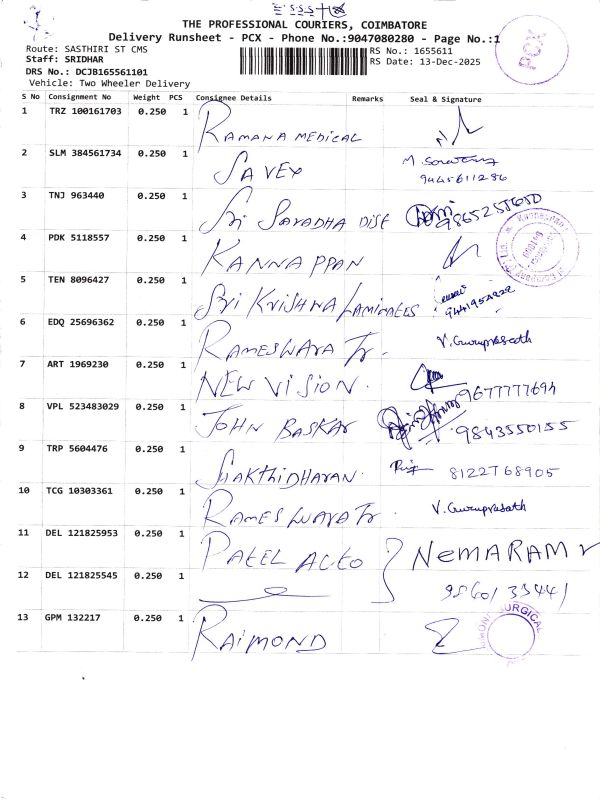 THE PROFESSIONAL COURIERS, COIMBATORE
Delivery Runsheet - PCX - Phone No.:9047080280 - Page No.:1
Route: SASTHIRI ST CMS
RS No.: 1655611
Staff: SRIDHAR
RS Date: 13-Dec-2025
DRS No.: DCJB165561101
Vehicle: Two Wheeler Delivery
PCX
S No Consignment No Weight PCS Consignee Details Remarks Seal & Signature
1 TRZ 100161703 0.250 1 RAMANA MEDICAL
2 SLM 384561734 0.250 1 SAVEX
9445611286
3 TNJ 963440 0.250 1 Sri SARADHA DISt
4 PDK 5118557 0.250 1 KANNAPPAN
5 TEN 8096427 0.250 1 Sri KriSHNA LAMINATES
6 EDQ 25696362 0.250 1 RAMESWARA Tr. V. Guruprasath
7 ART 1969230 0.250 1 NEW VISION. 9677777694
8 VPL 523483029 0.250 1 JOHN BASKAR 9843550155
9 TRP 5604476 0.250 1 SHAKTHIDHARAN. 8122768905
10 TCG 10303361 0.250 1 RAMESWARA Tr V. Guruprasath
11 DEL 121825953 0.250 1 PATEL AUTO NEMARAM
12 DEL 121825545 0.250 1
13 GPM 132217 0.250 1 RAIMOND